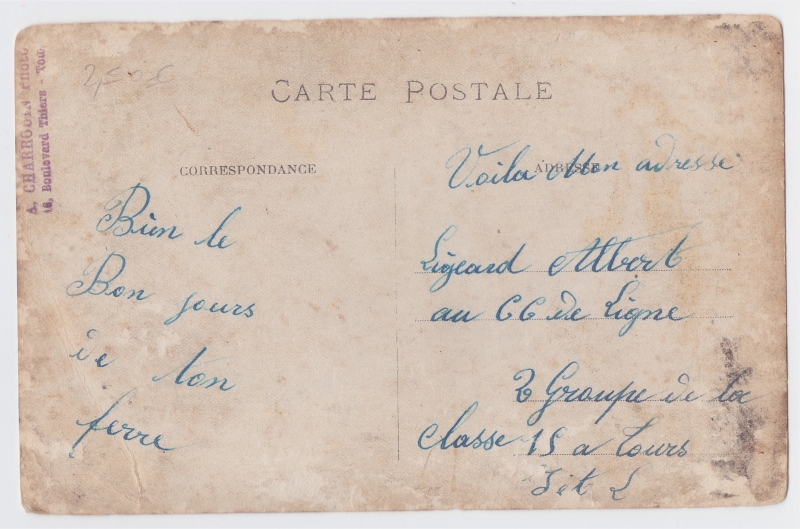 A. CHARBONIN Phot
16, Boulevard Thiers - Tou
CARTE POSTALE
CORRESPONDANCE
ADRESSE
Bien le
Bon jours
de ton
ferre
Voila Mon adresse
Ligeard Albert
au 66 de Ligne
2 Groupe de la
classe 15 a tours
I et L